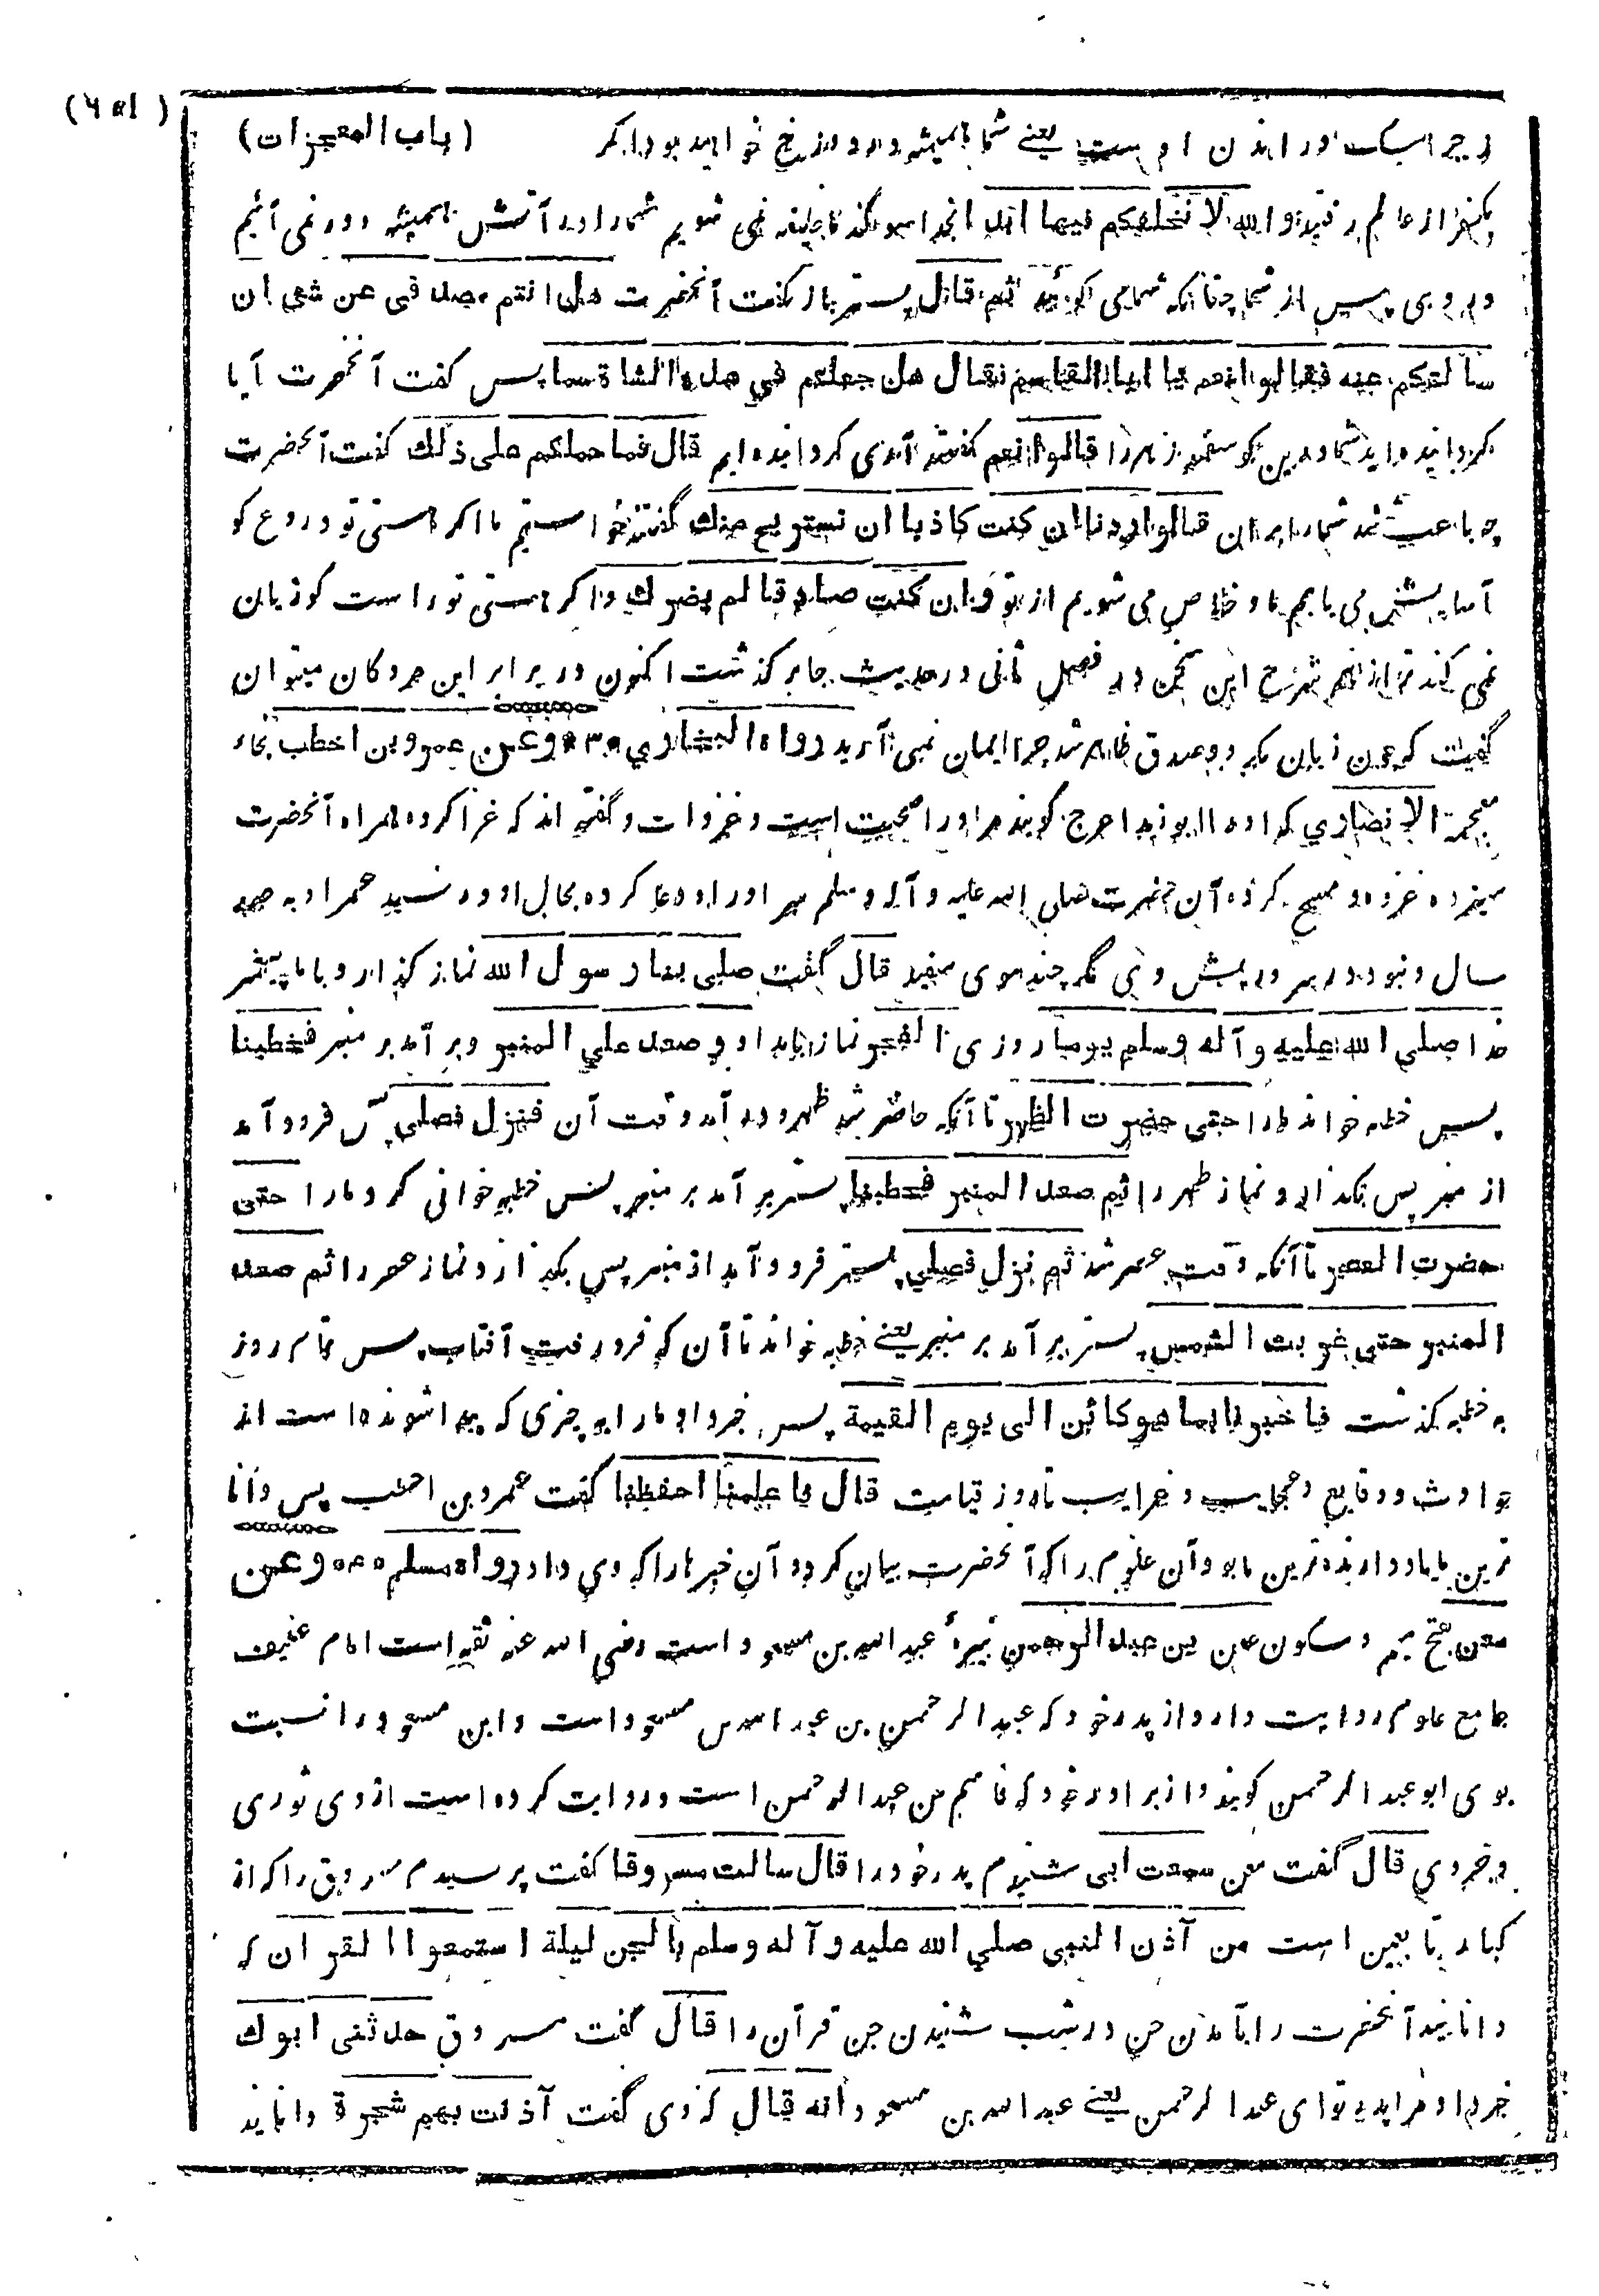 (باب المعجزات)
زجر اسک در راندن او ست یعنے شما همیشه در دوزخ خواهید بود اگر
بکفر از عالم رفتید والله لا نخلفکم فیها ابدا بخدا سوگند ما خلیفه نمی شویم شما را در آتش همیشه و در نمی آئیم
در وی پس از شما چنانکه شما می گوئید ثم قال پستر باز گفت آنحضرت هل انتم مصدقی عن شی ان
سألتکم عنه فقالوا نعم یا ابا القاسم فقال هل جعلتم فی هذه الشاة سما پس گفت آنحضرت آیا
گردانیده اید شما درین گوسفند زهر را قالوا نعم گفتند آری گردانیده ایم قال فما حملکم علی ذلك گفت آنحضرت
چه باعث شد شما را بر آن قالوا اردنا ان کنت کاذبا ان نستریح منك گفتند خواستیم ما اگر هستی تو دروغ گو
آسایش می یابیم ما و خلاص می شویم از تو و ان کنت صادقا لم یضرك و اگر هستی تو راست گو زیان
نمی کند ترا زهر شرح این سخن در فصل ثانی در حدیث جابر گذشت اکنون در برابر این مردکان میتوان
گفت که چون زیان نکرد و صدق ظاهر شد چرا ایمان نمی آرید رواه البخاري ۵۳۹ وعن عمرو بن اخطب بخاء
معجمة الانصاري که او را ابو زید اعرج گویند مر او را صحبت است و غزوات و گفته اند که غزا کرده همراه آنحضرت
سیزده غزوه و مسح کرده آن حضرت صلی الله علیه و آله و سلم سر او را و دعا کرده بجمال او و رسید عمر او به صد
سال و نبود در سر و ریش وی مگر چند موی سفید قال گفت صلی بنا رسول الله نماز گذارد با ما پیغمبر
خدا صلی الله علیه و آله وسلم یوما روزی الفجر نماز بامداد و صعد علی المنبر و بر آمد بر منبر فخطبنا
پس خطبه خواند ما را حتی حضرت الظهر تا آنکه حاضر شد ظهر و در آمد وقت آن فنزل فصلی پس فرود آمد
از منبر پس بگذارد نماز ظهر را ثم صعد المنبر فخطبنا پستر بر آمد بر منبر پس خطبه خوانی کرد ما را حتی
حضرت العصر تا آنکه وقت عصر شد ثم نزل فصلی پستر فرود آمد از منبر پس بگذارد نماز عصر را ثم صعد
المنبر حتی غربت الشمس پستر بر آمد بر منبر یعنے خطبه خواند تا آن که فرو رفت آفتاب پس تمام روز
به خطبه گذشت فاخبرنا بما هو کائن الی یوم القیمة پس خبر داد ما را به چیزی که پیدا شونده است از
حوادث و وقایع و عجایب و غرایب تا روز قیامت قال فاعلمنا احفظنا گفت عمرو بن اخطب پس دانا
ترین ما یاد دارنده ترین ما بود آن علوم را که آنحضرت بیان کرد و آن خبرها را که وی داد رواه مسلم ۵۴۰ وعن
معن بفتح میم و سکون عین بن عبد الرحمن نبیرهٔ عبد الله بن مسعود است رضی الله عنه ثقه است امام عفیف
جامع علوم روایت دارد از پدر خود که عبد الرحمن بن عبد الله بن مسعود است و ابن مسعود را نسبت
بوی ابو عبد الرحمن گویند و از برادر خود که قاسم بن عبد الرحمن است و روایت کرده است از وی ثوری
و جز وی قال گفت معن سمعت ابی شنیدم پدر خود را قال سالت مسروقا گفت پرسیدم مسروق را که از
کبار تابعین است من آذن النبی صلی الله علیه و آله وسلم بالجن لیلة استمعوا القران که
دانانید آنحضرت را بآمدن جن در شب شنیدن جن قرآن را قال گفت مسروق حدثنی ابوك
خبر داد مرا پدر تو ای عبد الرحمن یعنے عبد الله بن مسعود انه قال که وی گفت آذنت بهم شجرة دانانید